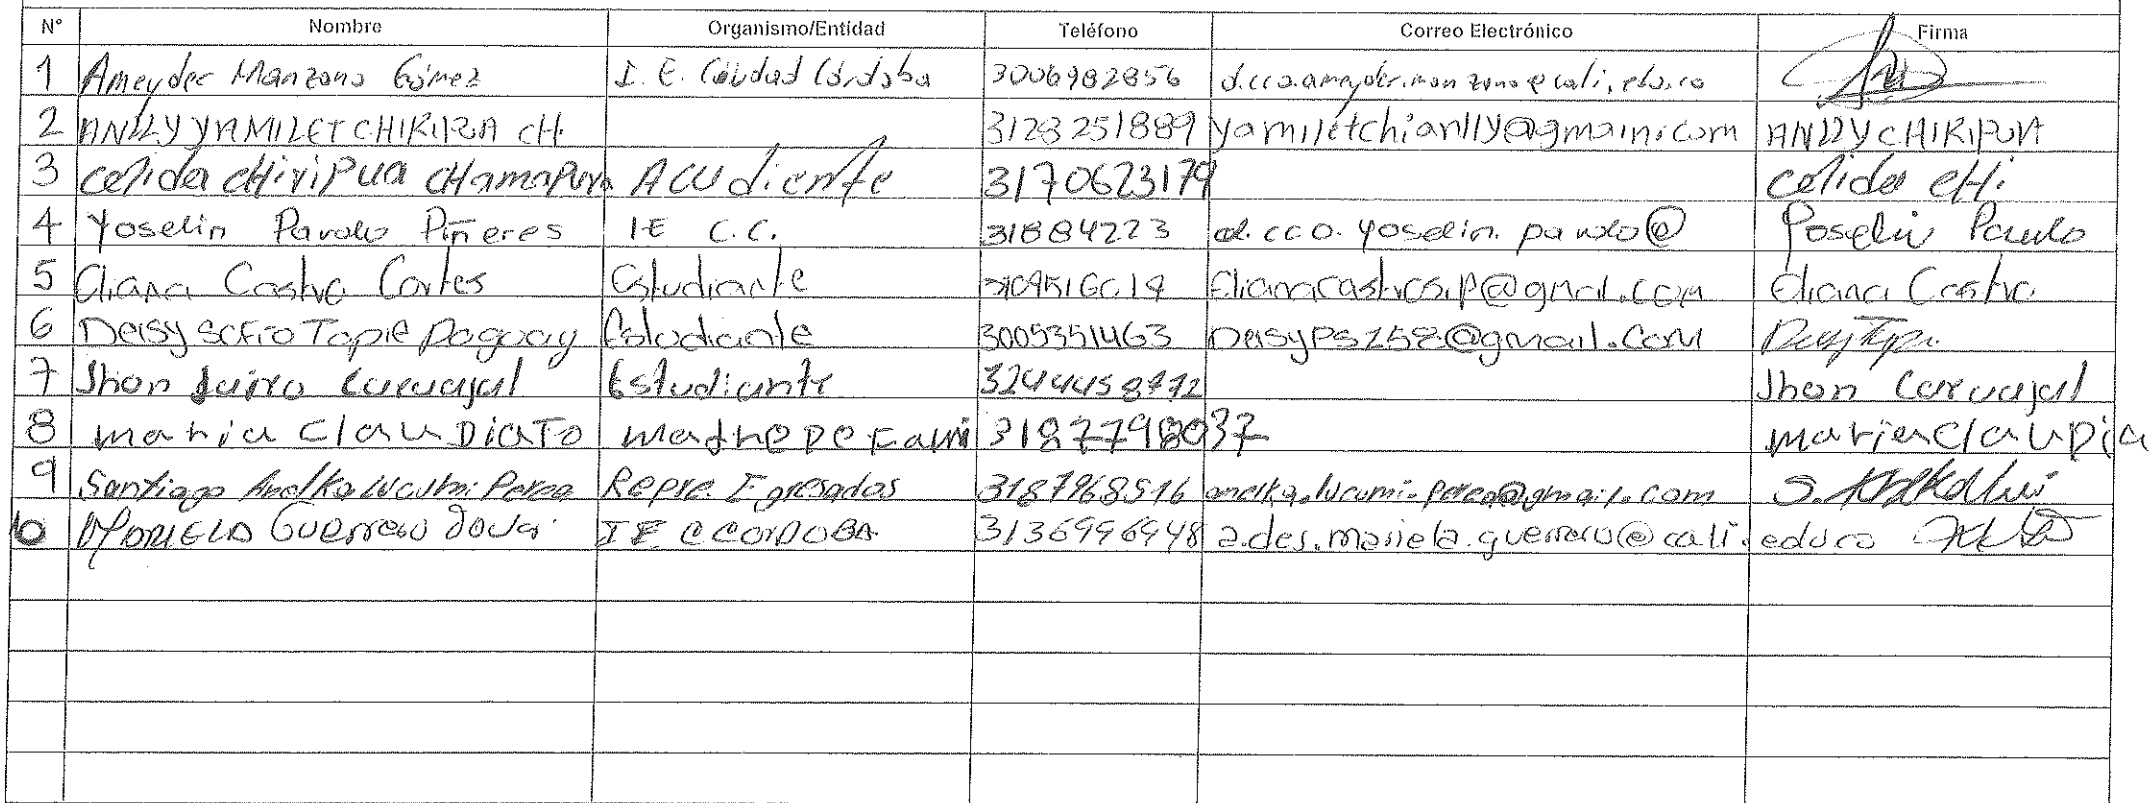 N° Nombre Organismo/Entidad Teléfono Correo Electrónico Firma
1 Ameyder Manzano Gómez I. E. Ciudad Córdoba 3006982856 d.cco.ameyder.manzano@cali.edu.co
2 ANLLY YAMILET CHIRIPUA CH. 3128251889 yamiletchianlly@gmain.com ANLLY CHIRIPUA
3 Celida CHiriPUA CHamaPuro ACUdiente 3170623179 Celida CH.
4 Yoselin Pardo Piñeres IE C.C. 31884223 d.cco.yoselin.pardo@ Yoselin Pardo
5 Eliana Castro Cortes Estudiante Elianacastros.p@gmail.com Eliana Castro
6 Deisy Tapie Paguay Estudiante 3005351463 DeisyPs258@gmail.com
7 Jhon Jairo Carvajal Estudiante 3244458772 Jhon Carvajal
8 maria ClauDia To madre De Fami 3187798037 maria ClauDia
9 Santiago Anelka Lucumi Perea Repre. Egresados 3187968516 anelka.lucumi.perea@gmail.com
10 Mariela Guerrero IE C CORDOBA 3136996948 a.des.mariela.guerrero@cali.edu.co